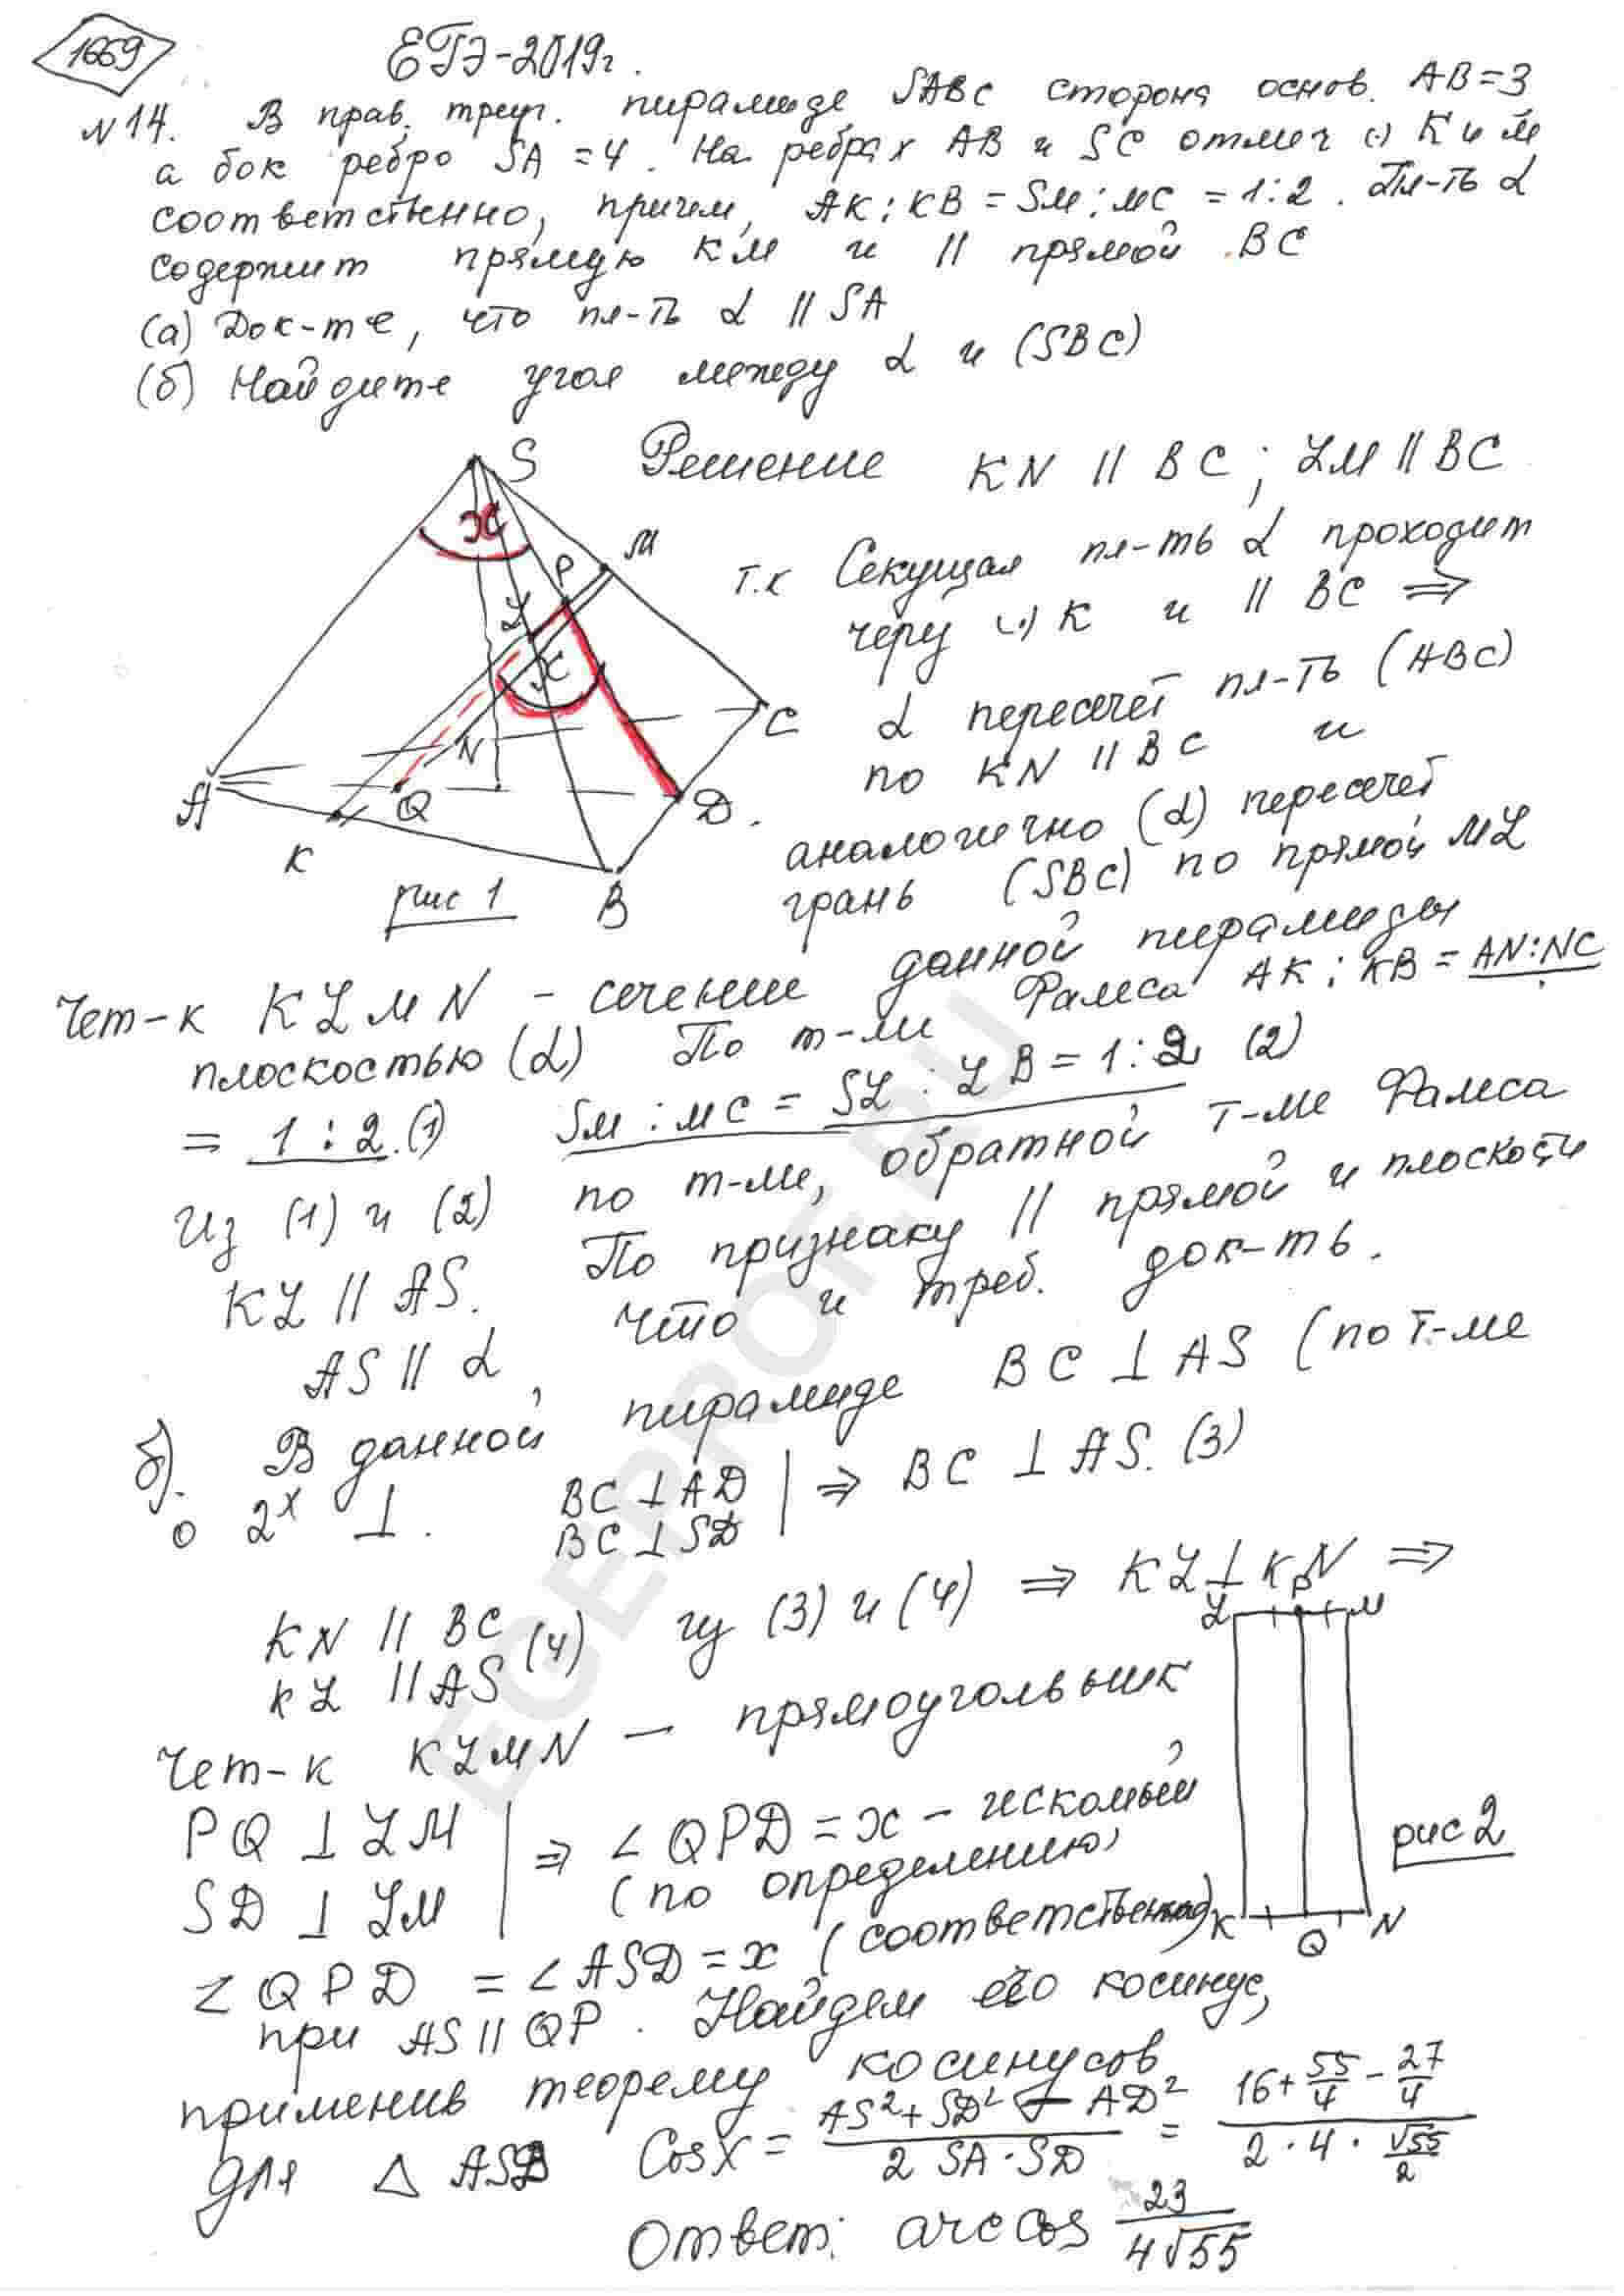 1669
ЕГЭ-2019г.
№14. В прав. треуг. пирамиде SABC сторона основ. AB=3
а бок ребро SA=4. На ребрах AB и SC отмеч (·) K и M
соответственно, причем, AK:KB=SM:MC=1:2. Пл-ть α
содержит прямую KM и || прямой BC
(а) Док-те, что пл-ть α || SA
(б) Найдите угол между α и (SBC)
Решение KN || BC; LM || BC
т.к Секущая пл-ть α проходит
через (·) K и || BC ⇒
α пересечет пл-ть (ABC)
по KN || BC и
аналогично (α) пересечет
грань (SBC) по прямой ML
S
x
M
P
L
x
N
C
A
Q
D.
K
B
рис 1
Чет-к KLMN - сечение данной пирамиды
плоскостью (α) По т-ме Фалеса AK:KB=AN:NC
= 1:2.(1) SM:MC=SL:LB=1:2 (2)
Из (1) и (2) по т-ме, обратной т-ме Фалеса
KL || AS. По признаку || прямой и плоскости
AS || α, что и треб. док-ть.
б). В данной пирамиде BC ⊥ AS (по т-ме
о 2х ⊥. BC⊥AD
BC⊥SD | ⇒ BC ⊥ AS. (3)
KN || BC (4) из (3) и (4) ⇒ KL⊥KN ⇒
KL || AS
Чет-к KLMN — прямоугольник
PQ ⊥ LM | ⇒ ∠QPD=x - искомый
SD ⊥ LM (по определению)
∠QPD = ∠ASD=x (соответственно)
при AS||QP. Найдем его косинус,
применив теорему косинусов
для △ ASD Cosx = AS²+SD²-AD² / 2 SA·SD = 16+55/4-27/4 / 2·4·√55/2
Ответ: arccos 23/4√55
L P M
K Q N
рис 2
EGEPROF.RU